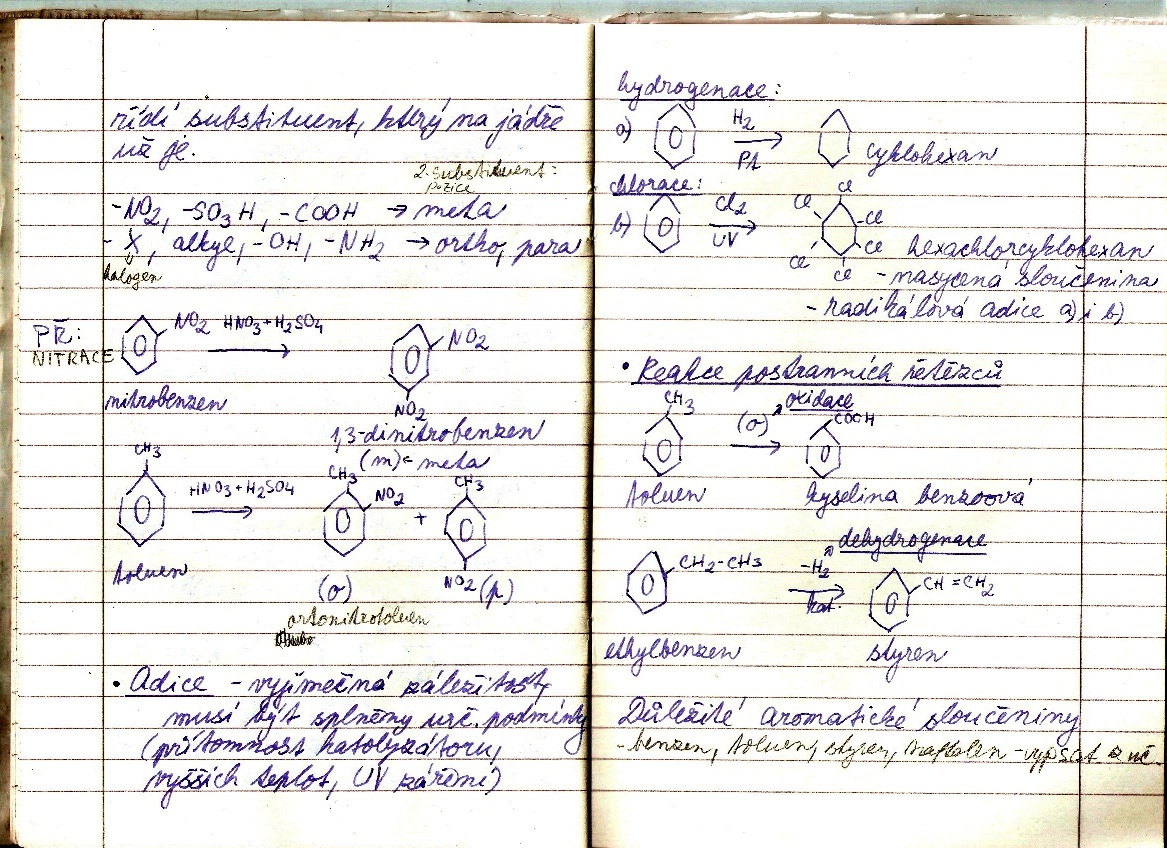 řídí substituent, který na jádře
už je.
2. substituent:
pozice
-NO2, -SO3H, -COOH → meta
- X, alkyl, -OH, -NH2 → ortho, para
halogen
PŘ:
NITRACE
NO2 HNO3+H2SO4 NO2
nitrobenzen
NO2
1,3-dinitrobenzen
(m) = meta
CH3 HNO3+H2SO4 CH3 NO2 + CH3
toluen
NO2
(o) (p)
ortonitrotoluen
• Adice - vyjímečná záležitost,
musí být splněny urč. podmínky
(přítomnost katalyzátoru,
vyšších teplot, UV záření)
hydrogenace:
a) H2
Pt cyklohexan
chlorace:
b) Cl2 Cl Cl Cl Cl Cl Cl
UV
hexachlorcyklohexan
- nasycená sloučenina
- radikálová adice a) i b)
• Reakce postranních řetězců
CH3 (o) oxidace COOH
toluen kyselina benzoová
dehydrogenace
CH2-CH3 -H2 CH=CH2
kat.
ethylbenzen styren
Důležité aromatické sloučeniny
- benzen, toluen, styren, naftalen - vypsat z uč.